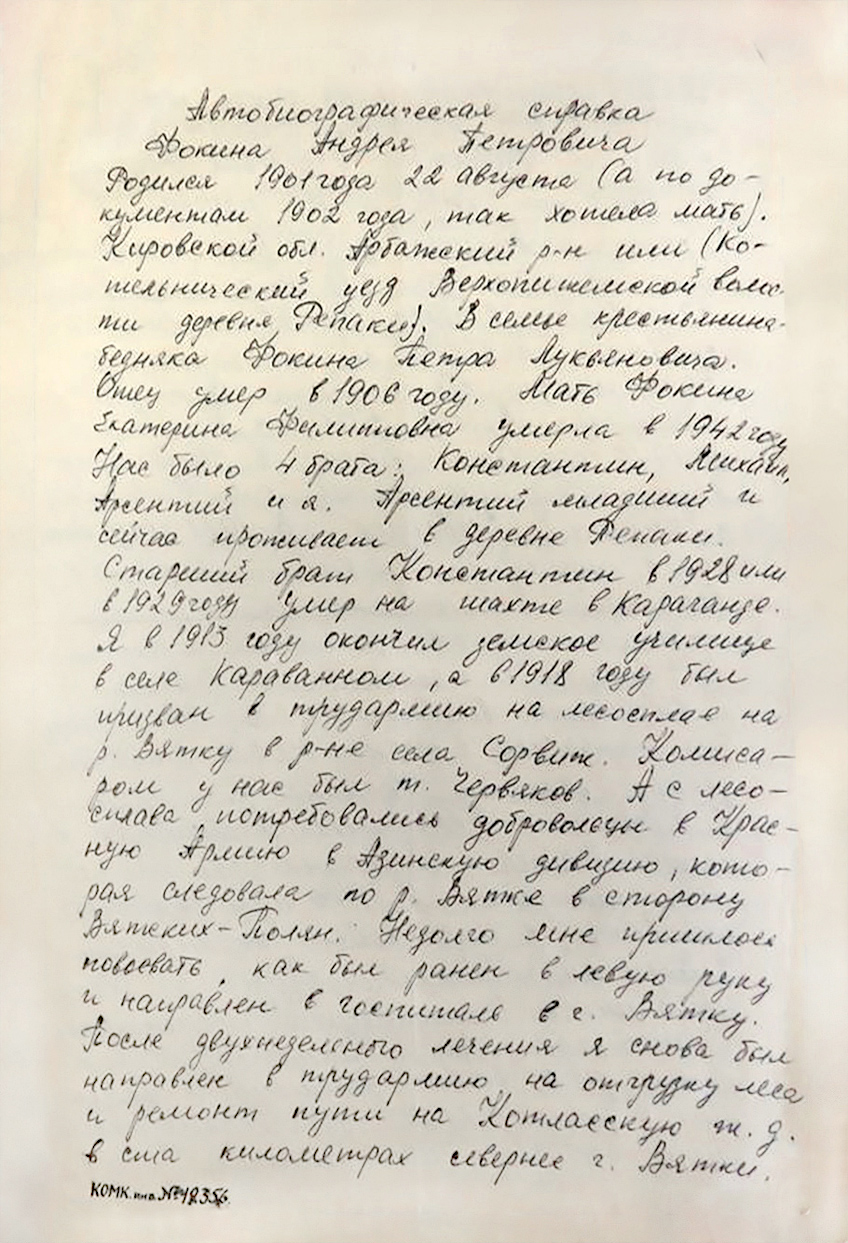 Автобиографическая справка
Фокина Андрея Петровича
Родился 1901 года 22 августа (а по до-
кументам 1902 года, так хотела мать).
Кировской обл. Арбажский р-н или (Ко-
тельнический уезд Верхопижемской волос-
ти деревня Репаки). В семье крестьянина-
бедняка Фокина Петра Лукьяновича.
Отец умер в 1906 году. Мать Фокина
Екатерина Филипповна умерла в 1942 году
Нас было 4 брата: Константин, Михаил,
Арсентий и я. Арсентий младший и
сейчас проживает в деревне Репаки.
Старший брат Константин в 1928 или
в 1929 году умер на шахте в Караганде.
Я в 1913 году окончил земское училище
в селе Караванном, а в 1918 году был
призван в трудармию на лесосплав на
р. Вятку в р-не села Сорвиж. Комиса-
ром у нас был т. Червяков. А с лесо-
сплава потребовались добровольцы в Крас-
ную Армию в Азинскую дивизию, кото-
рая следовала по р. Вятке в сторону
Вятских-Полян. Недолго мне пришлось
повоевать, как был ранен в левую руку
и направлен в госпиталь в г. Вятку.
После двухнедельного лечения я снова был
направлен в трудармию на отгрузку леса
и ремонт пути на Котласскую ж. д.
в ста километрах севернее г. Вятки.
КОМК инв. № 48356